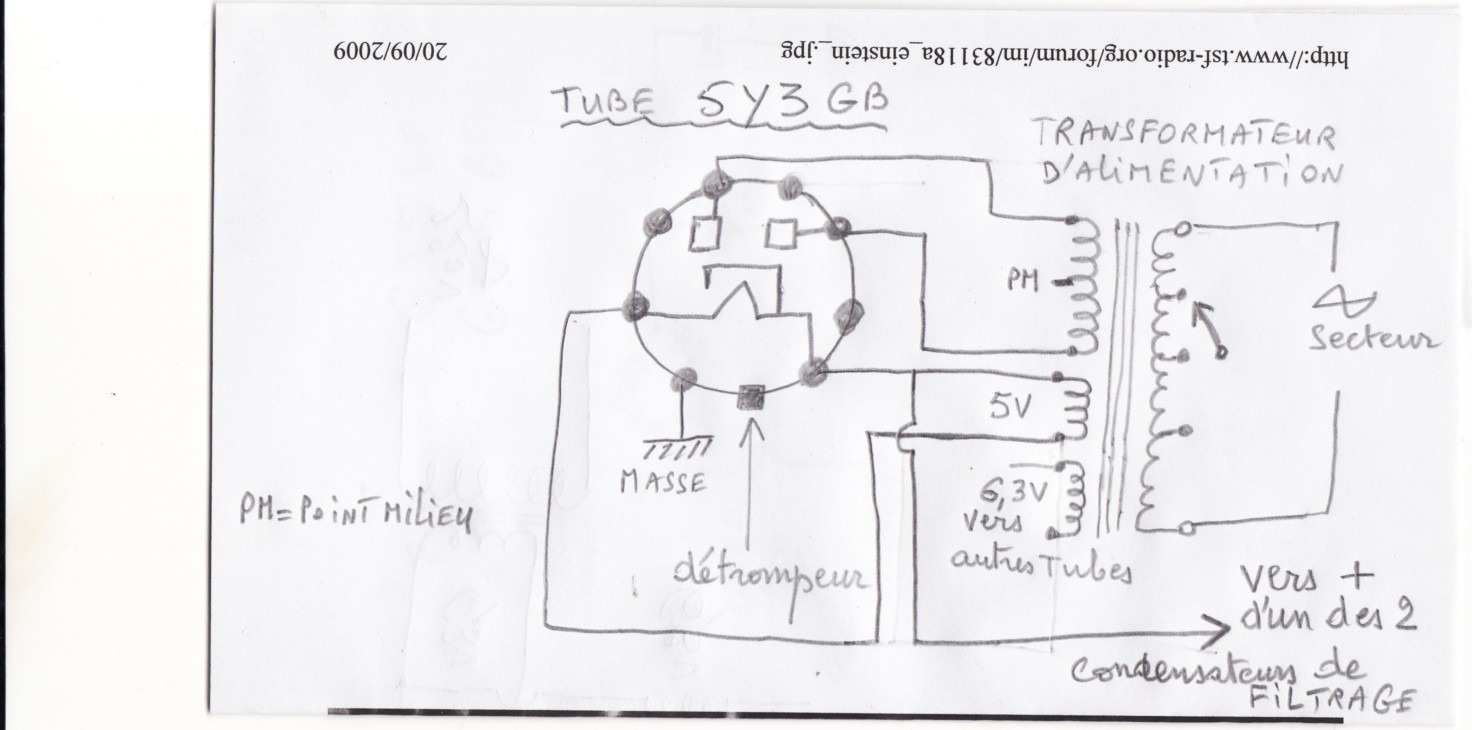 20/09/2009
http://www.tsf-radio.org/forum/im/83118a_einstein_.jpg
TUBE 5Y3 GB
TRANSFORMATEUR
D'ALIMENTATION
PM
Secteur
5V
MASSE
6,3V
vers
autres Tubes
PM = POINT MILIEU
détrompeur
vers +
d'un des 2
Condensateurs de
FILTRAGE